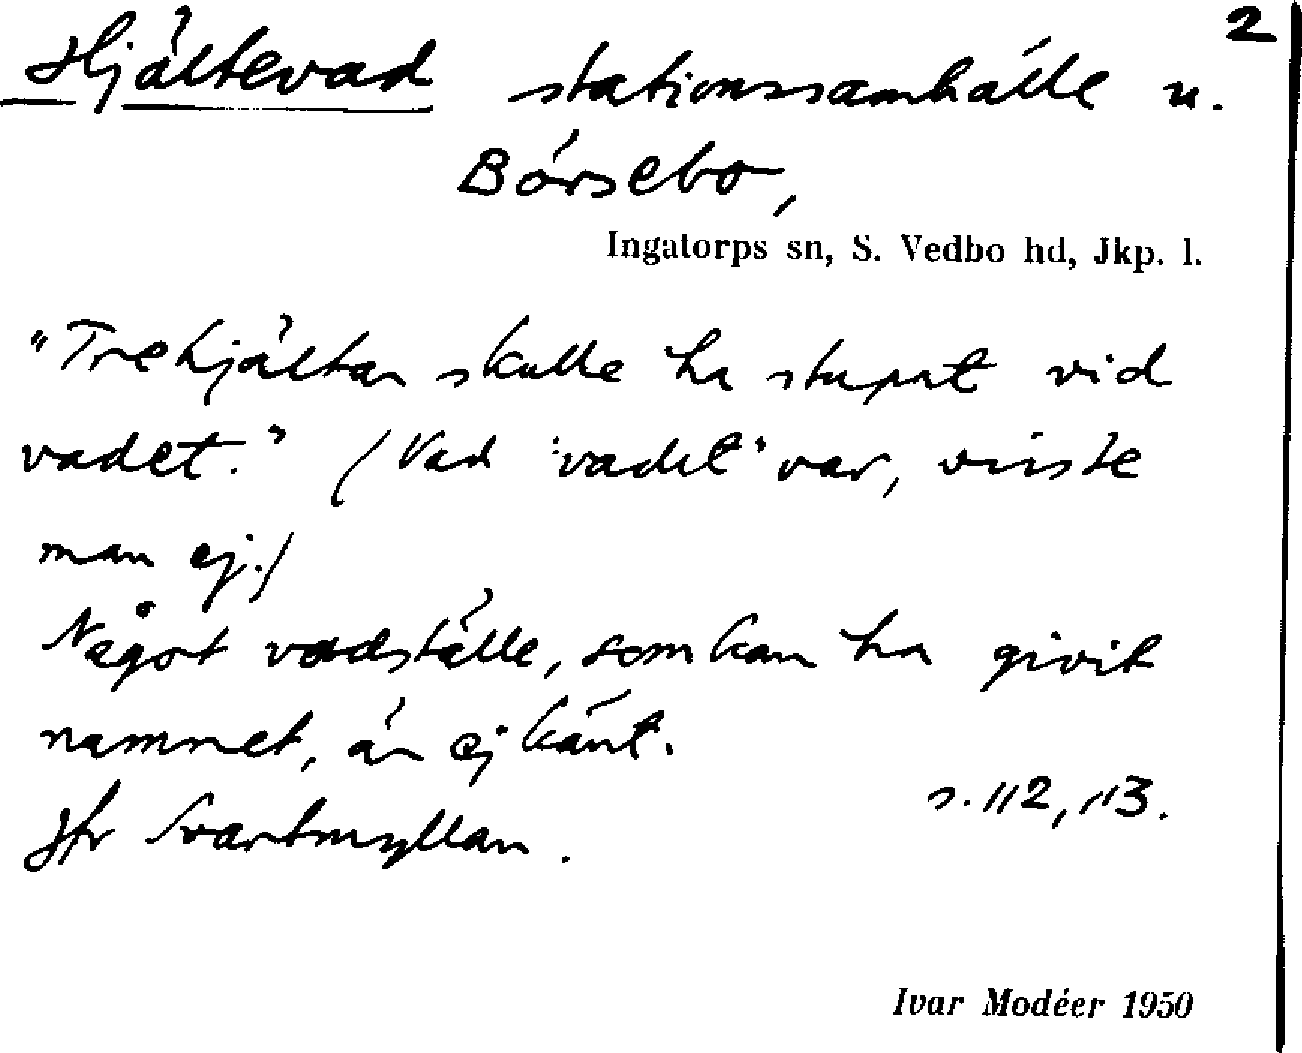 2
Hjältevad stationssamhälle u.
Börsebo,
Ingatorps sn, S. Vedbo hd, Jkp. l.
"Tre hjältar skulle ha stupat vid
vadet." (Vad "vadet" var, visste
man ej.)
Något vadställe, som kan ha givit
namnet, är ej känt.
s. 112, 113.
Jfr Svartmyllan.
Ivar Modéer 1950